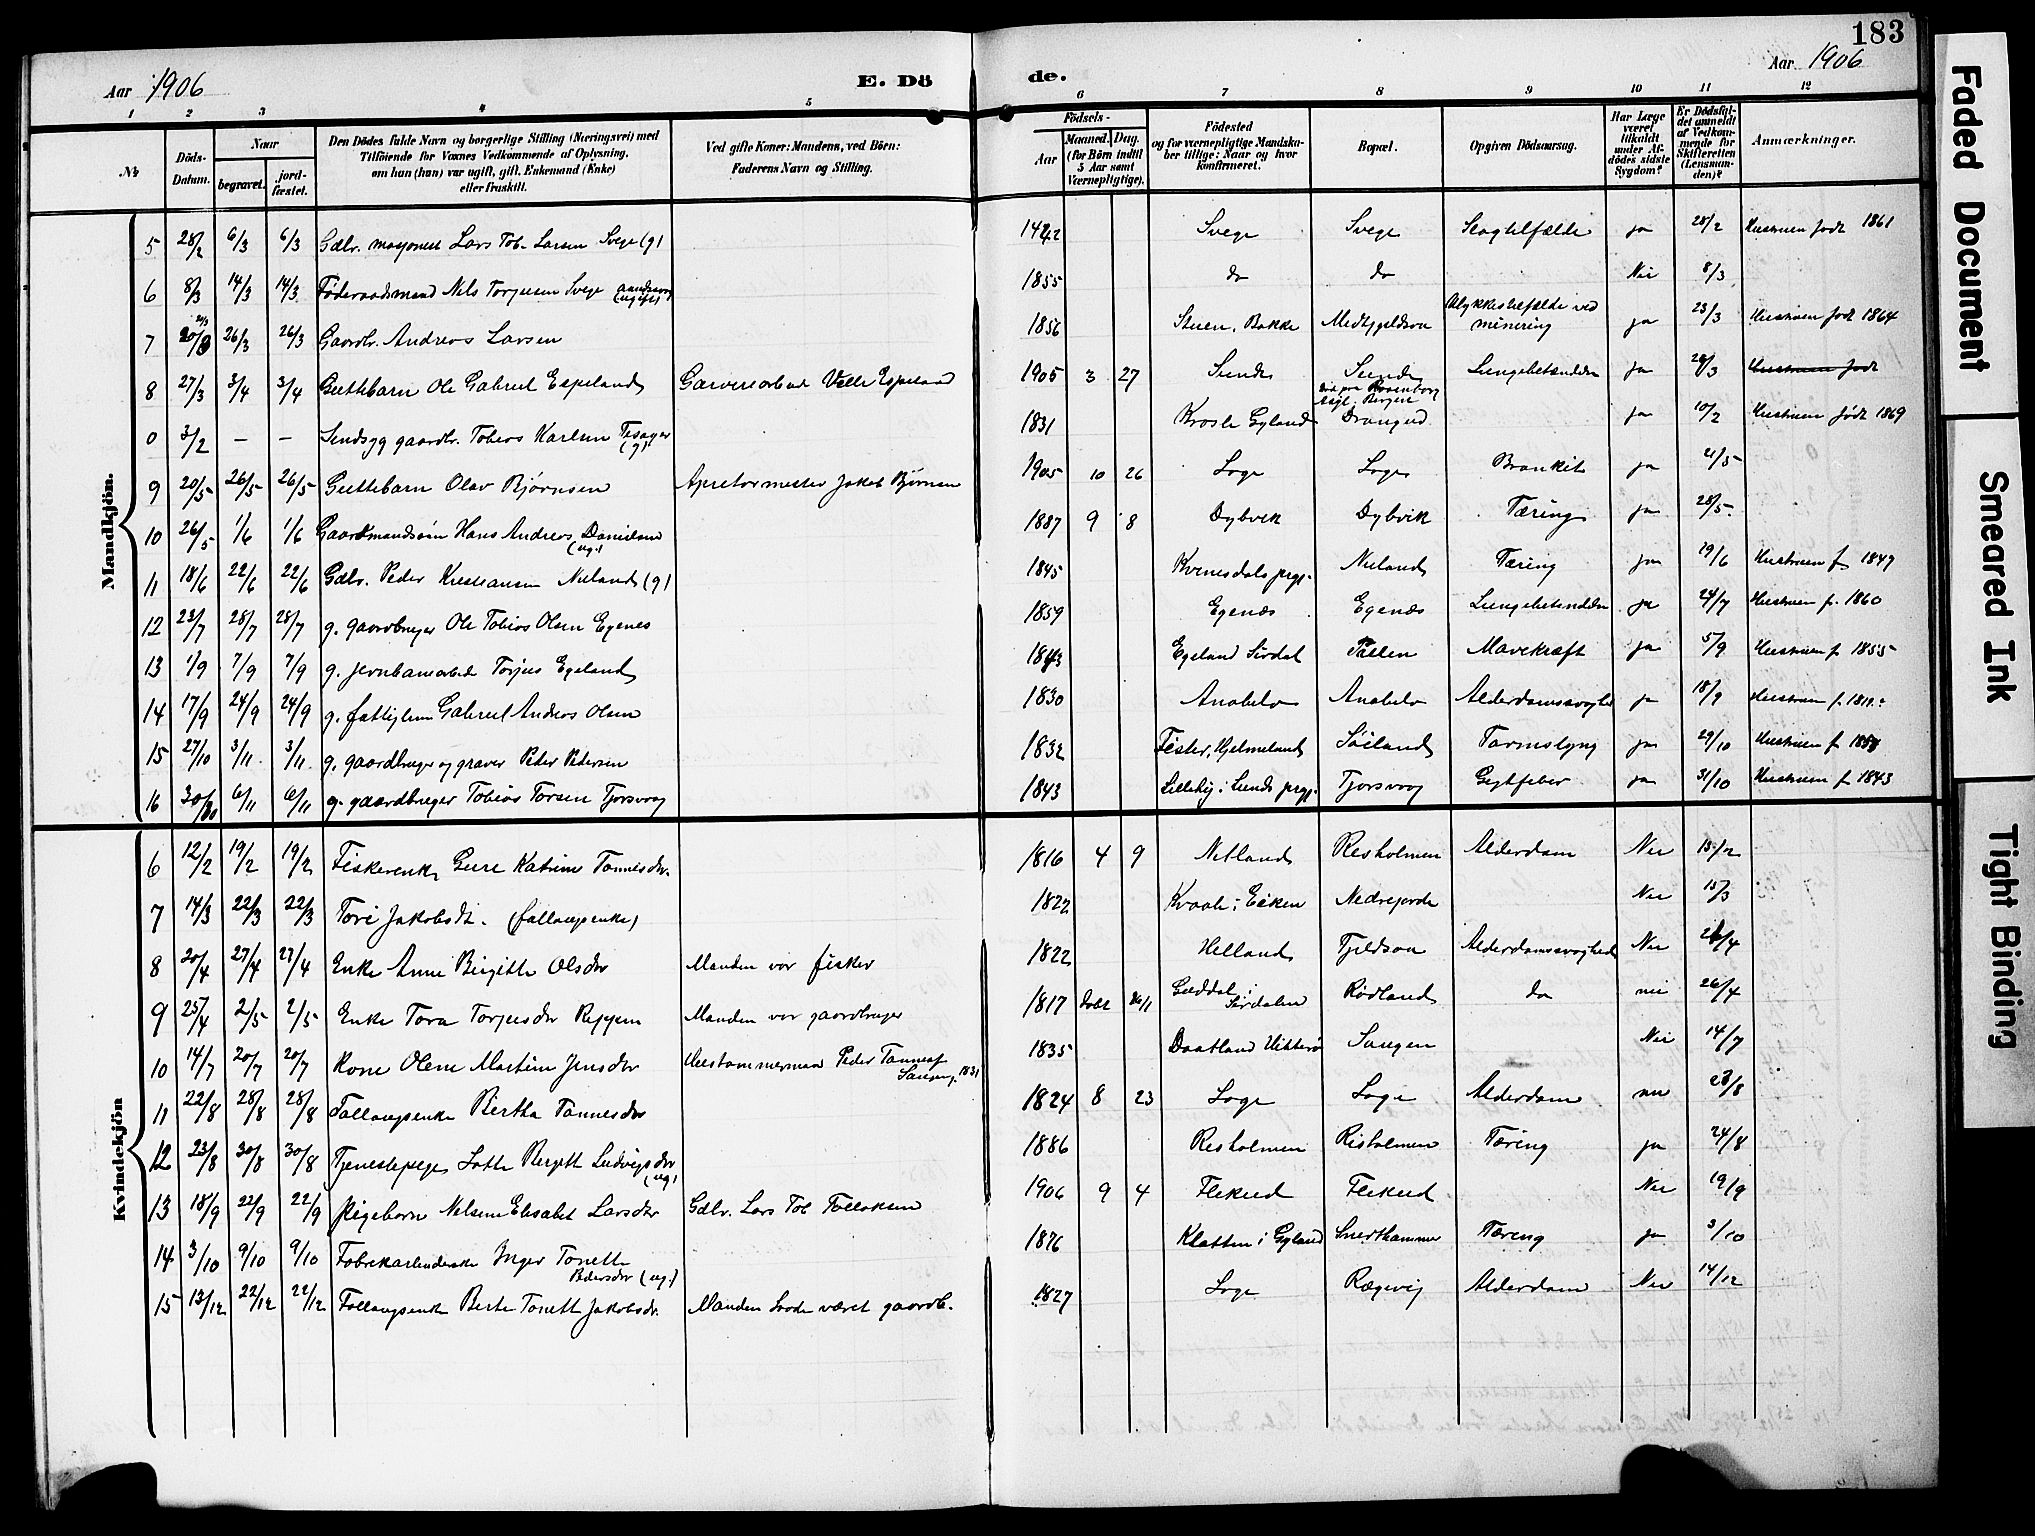 183
Aar 1906
E. Döde.
Aar 1906
1 2 3 4 5 6 7 8 9 10 11 12
№
Döds-Datum.
Naar
begravet.
jordfæstet.
Den Dödes fulde Navn og borgerlige Stilling (Næringsvei) med
Tilföiende for Voxnes Vedkommende af Oplysning.
om han (hun) var ugift, gift, Enkemand (Enke)
eller fraskilt.
Ved gifte Koner: Mandens, ved Börn:
Faderens Navn og Stilling.
Födsels-
Aar
Maaned. Dag.
(for Börn indtil
5 Aar samt
Værnepligtige).
Födested
og for værnepligtige Mandskaber tillige: Naar og hvor
konfirmeret.
Bopæl.
Opgiven Dödsaarsag.
Har Læge
været
tilkaldt
under Afdödes sidste
Sygdom?
Er Dödsfaldet anmeldt
af Vedkommende for
Skifteretten
(Lensmanden)?
Anmærkninger.
Mandkjön.
5 28/2 6/3 6/3 Gdbr. Lars Tob. Larsen Svege (g) Svege Svege Slagtilfælde ja 28/2 Hustruen født 1861
6 8/3 14/3 14/3 Føderaadsmand Nels Torjusen Svege 1855 do do Nei 8/3
7 26/3 26/3 Gaardbr. Andreas Larsen 1856 Stuen, Bakke Ulykkestilfælde ved minering ja 23/3 Hustruen født 1864
8 27/3 3/4 3/4 Guttebarn Ole Gabriel Espeland 1905 3 27 Sunde Sunde Lungebetændelse ja Hustruen født
0 3/2 – – Sindsyg gaardbr. Tobias Karlsen (g) 1831 Gyland Drangeid ja 10/2 Hustruen født 1869
9 20/5 26/5 26/5 Guttebarn Olav Bjørnsen Apretørmester Jakob Bjørnsen 1905 10 26 Loge Loge Bronkit ja 21/5
10 26/5 1/6 1/6 Gaardmandssøn Hans Andreas Danielsen (ug.) 1887 9 8 Dybvik Dybvik Tæring ja 28/5
11 18/6 22/6 22/6 Gdbr. Peder Kristiansen Nuland (g) 1845 Kvinesdals prgj. Nuland Tæring ja 19/6 Hustruen f. 1847
12 23/7 28/7 28/7 g. gaardbruger Ole Tobias Olsen Egenes 1859 Egenæs Egenæs Lungebetændelse ja 24/7 Hustruen f. 1860
13 1/9 7/9 7/9 g. jernbanearbeide Torjus Egeland 1843 Egeland Sirdal Pallen Mavekræft ja 5/9 Hustruen f. 1855
14 17/9 24/9 24/9 g. fattiglem Gabriel Andreas Olsen 1830 Anabelø Anabelø Alderdomssvaghed ja 18/9
15 27/10 3/11 3/11 g. gaardbruger og graver Peder Pedersen 1832 Fister, Hjelmeland Søiland Tarmslyng ja 29/10
16 30/10 6/11 6/11 g. gaardbruger Tobias Torsen Tjorsvaag 1843 i Lunds prgj. Tjorsvaag Gigtfeber ja 31/10 Hustruen f. 1843
Kvindekjön
6 12/2 19/2 19/2 Fiskerenke Gure Katrine Tonnesdtr. 1816 4 9 Netland Resholmen Alderdom Nei 13/2
7 14/3 22/3 22/3 Tori Jakobsdt. (fattigenke) 1822 Kvaale i Eiken Nedrejorde Nei 15/3
8 20/4 27/4 27/4 Enke Anne Birgitte Olsdtr Manden var fisker 1822 Helland Fjeldsaa Alderdomssvaghed Nei
9 25/4 2/5 2/5 Enke Tora Torjusdtr Reppen Manden var gaardbruger 1817 Sirdalen Rødland do nei 26/4
10 14/7 20/7 20/7 Kone Olene Martine Jensdtr Hustømmermand Peder 1831 1835 Daatland Hitterø Sangen Nei 14/7
11 22/8 28/8 28/8 Bertha Tonnesdtr 1824 8 23 Loge Loge Alderdom nei 23/8
12 23/8 30/8 30/8 Tjenestepige Lotte Bergett Ludvigsdtr (ug) 1886 Resholmen Resholmen Tæring ja 24/8
13 18/9 22/9 22/9 Pigebarn Nelsine Elisabet Larsdtr Gdbr. Lars Tob Tollaksen 1906 9 4 Flikeid Flikeid Nei 19/9
14 3/10 9/10 9/10 Fabrikarbeiderske Inger Tonette Pedersdtr (ug.) 1876 Klatten i Gyland Snerthammer Tæring ja 3/10
15 13/12 22/12 22/12 Berte Tonett Jakobsdt. Manden havde været gaardb. 1827 Loge Rægevig Alderdom Nei 14/12
Faded Document
Smeared Ink
Tight Binding